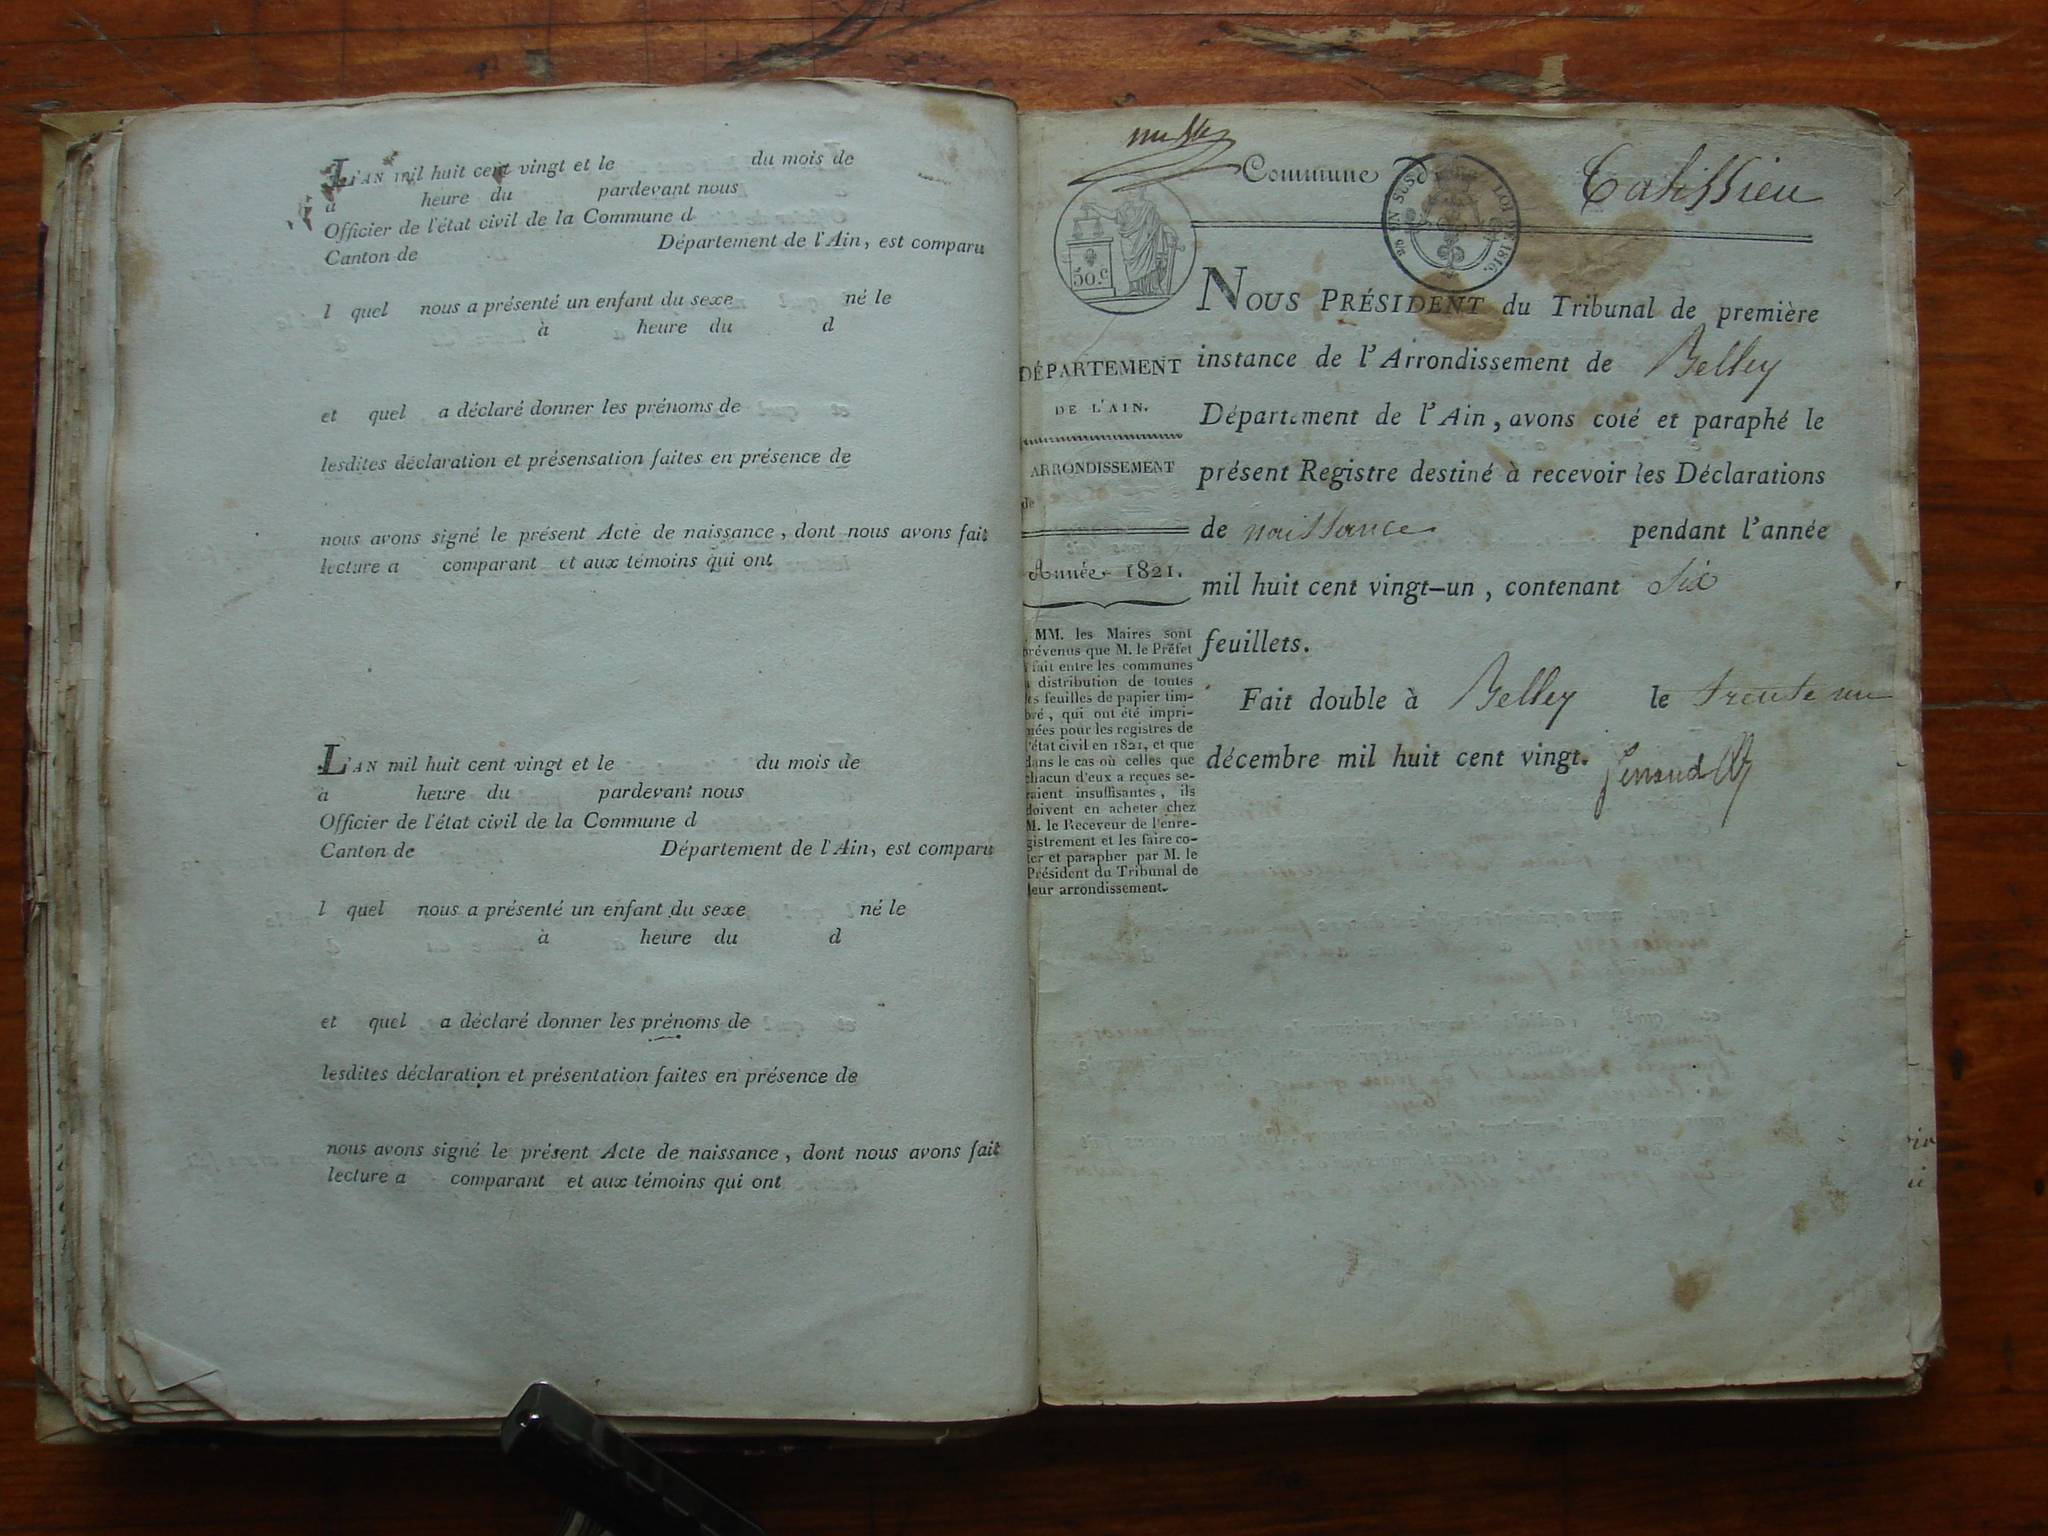 L'AN mil huit cent vingt et le du mois de
a heure du pardevant nous
Officier de l'état civil de la Commune d
Canton de Département de l'Ain, est comparu
l quel nous a présenté un enfant du sexe né le
à heure du d
et quel a déclaré donner les prénoms de
lesdites déclaration et présensation faites en présence de
nous avons signé le présent Acte de naissance, dont nous avons fait
lecture a comparant et aux témoins qui ont
L'AN mil huit cent vingt et le du mois de
a heure du pardevant nous
Officier de l'état civil de la Commune d
Canton de Département de l'Ain, est comparu
l quel nous a présenté un enfant du sexe né le
à heure du d
et quel a déclaré donner les prénoms de
lesdites déclaration et présentation faites en présence de
nous avons signé le présent Acte de naissance, dont nous avons fait
lecture a comparant et aux témoins qui ont
Commune Talissieu
EN SUS
LOI DE 1816.
50.c
NOUS PRÉSIDENT du Tribunal de première
instance de l'Arrondissement de Belley
Département de l'Ain, avons coté et paraphé le
présent Registre destiné à recevoir les Déclarations
de naissance pendant l'année
mil huit cent vingt-un, contenant Six
feuillets.
Fait double à Belley le trente un
décembre mil huit cent vingt.
DÉPARTEMENT
DE L'AIN.
ARRONDISSEMENT
de
Année 1821.
MM. les Maires sont
prévenus que M. le Préfet
fait entre les communes
distribution de toutes
les feuilles de papier tim-
bré, qui ont été impri-
mées pour les registres de
l'état civil en 1821, et que
dans le cas où celles que
chacun d'eux a reçues se-
raient insuffisantes, ils
doivent en acheter chez
M. le Receveur de l'enre-
gistrement et les faire co-
ter et parapher par M. le
Président du Tribunal de
leur arrondissement.